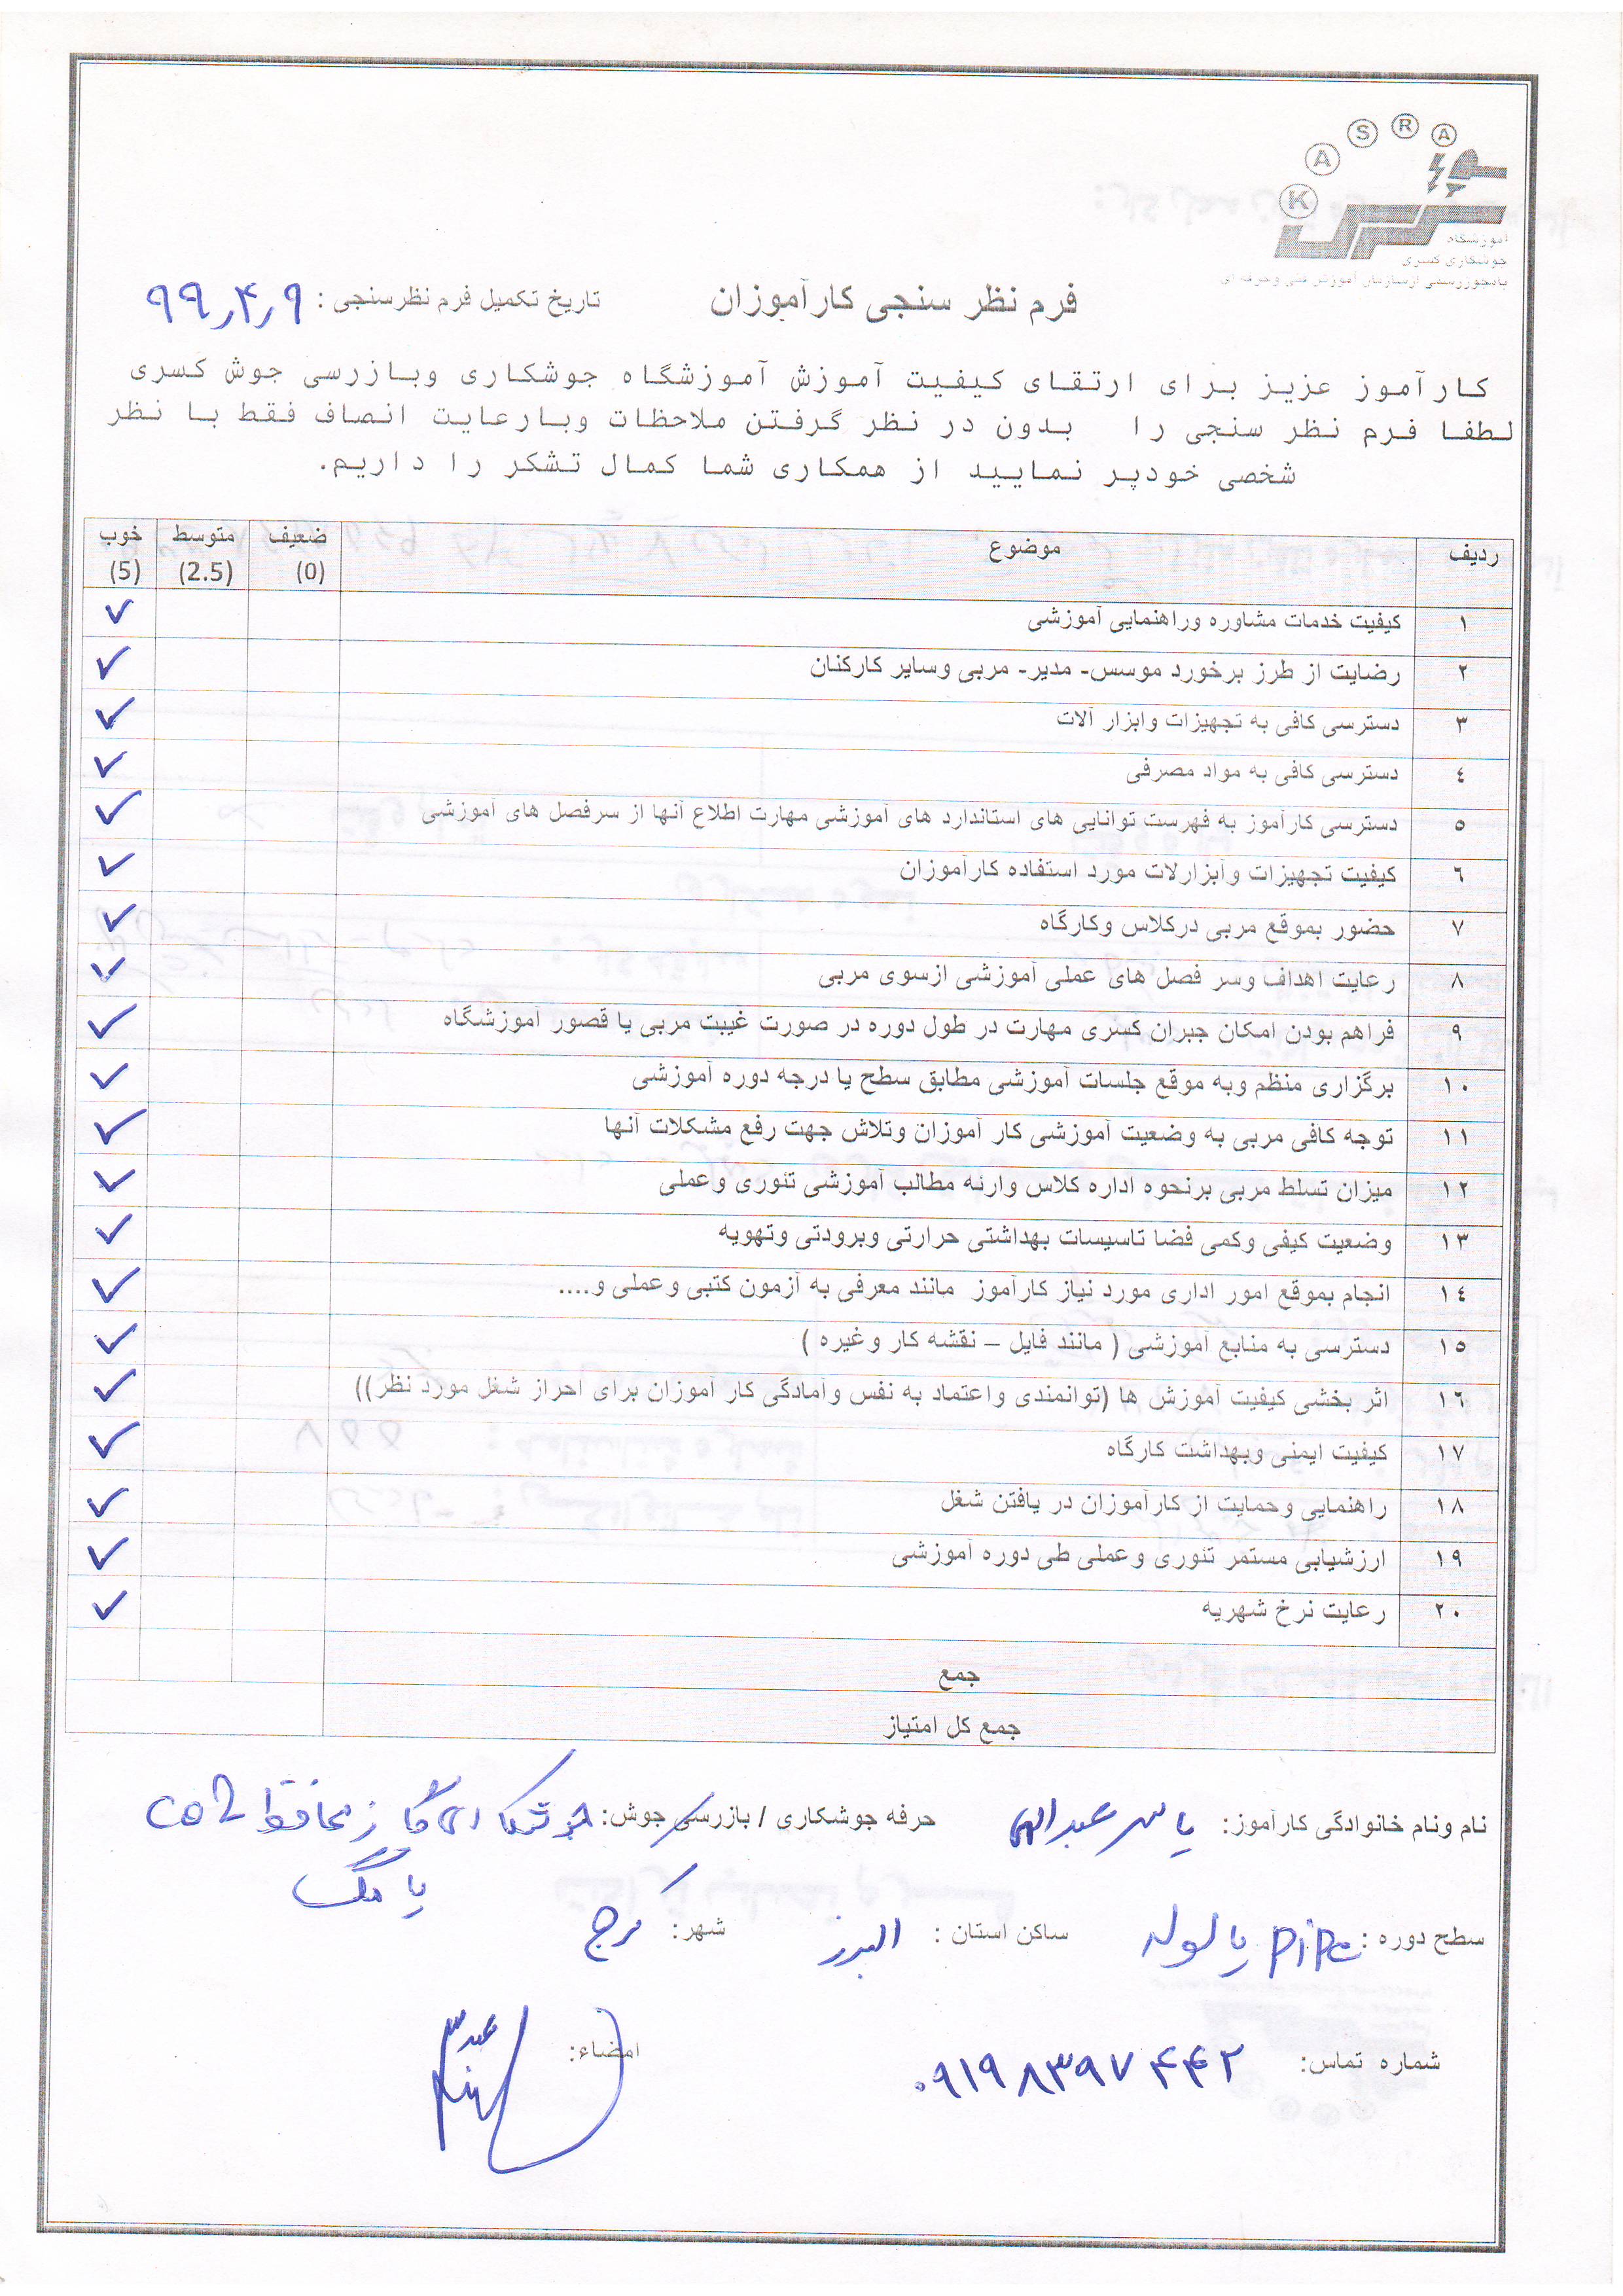 K A S R A
آموزشگاه
جوشکاری کسری
فرم نظر سنجی کارآموزان
تاریخ تکمیل فرم نظرسنجی : ۹۹٫۴٫۹
کارآموز عزیز برای ارتقای کیفیت آموزش آموزشگاه جوشکاری وبازرسی جوش کسری
لطفا فرم نظر سنجی را بدون در نظر گرفتن ملاحظات وبارعایت انصاف فقط با نظر
شخصی خودپر نمایید از همکاری شما کمال تشکر را داریم.
ردیف موضوع ضعیف (0) متوسط (2.5) خوب (5)
١ کیفیت خدمات مشاوره وراهنمایی آموزشی ✓
٢ رضایت از طرز برخورد موسس- مدیر- مربی وسایر کارکنان ✓
٣ دسترسی کافی به تجهیزات وابزار آلات ✓
٤ دسترسی کافی به مواد مصرفی ✓
٥ دسترسی کارآموز به فهرست توانایی های استاندارد های آموزشی مهارت اطلاع آنها از سرفصل های آموزشی ✓
٦ کیفیت تجهیزات وابزارلات مورد استفاده کارآموزان ✓
٧ حضور بموقع مربی درکلاس وکارگاه ✓
٨ رعایت اهداف وسر فصل های عملی آموزشی ازسوی مربی ✓
٩ فراهم بودن امکان جبران کسری مهارت در طول دوره در صورت غیبت مربی یا قصور آموزشگاه ✓
١٠ برگزاری منظم وبه موقع جلسات آموزشی مطابق سطح یا درجه دوره آموزشی ✓
١١ توجه کافی مربی به وضعیت آموزشی کار آموزان وتلاش جهت رفع مشکلات آنها ✓
١٢ میزان تسلط مربی برنحوه اداره کلاس وارئه مطالب آموزشی تئوری وعملی ✓
١٣ وضعیت کیفی وکمی فضا تاسیسات بهداشتی حرارتی وبرودتی وتهویه ✓
١٤ انجام بموقع امور اداری مورد نیاز کارآموز مانند معرفی به آزمون کتبی وعملی و.... ✓
١٥ دسترسی به منابع آموزشی ( مانند فایل – نقشه کار وغیره ) ✓
١٦ اثر بخشی کیفیت آموزش ها (توانمندی واعتماد به نفس وآمادگی کار آموزان برای احراز شغل مورد نظر)) ✓
١٧ کیفیت ایمنی وبهداشت کارگاه ✓
١٨ راهنمایی وحمایت از کارآموزان در یافتن شغل ✓
١٩ ارزشیابی مستمر تئوری وعملی طی دوره آموزشی ✓
٢٠ رعایت نرخ شهریه ✓
جمع
جمع کل امتیاز
نام ونام خانوادگی کارآموز: یاسر عبدالهی حرفه جوشکاری / بازرسی جوش: جوشکاری گاز محافظ CO2
یا مگ
سطح دوره : pipe یا لوله ساکن استان : البرز شهر: کرج
شماره تماس: ۰۹۱۹۸۳۹۷۴۴۲ امضاء: